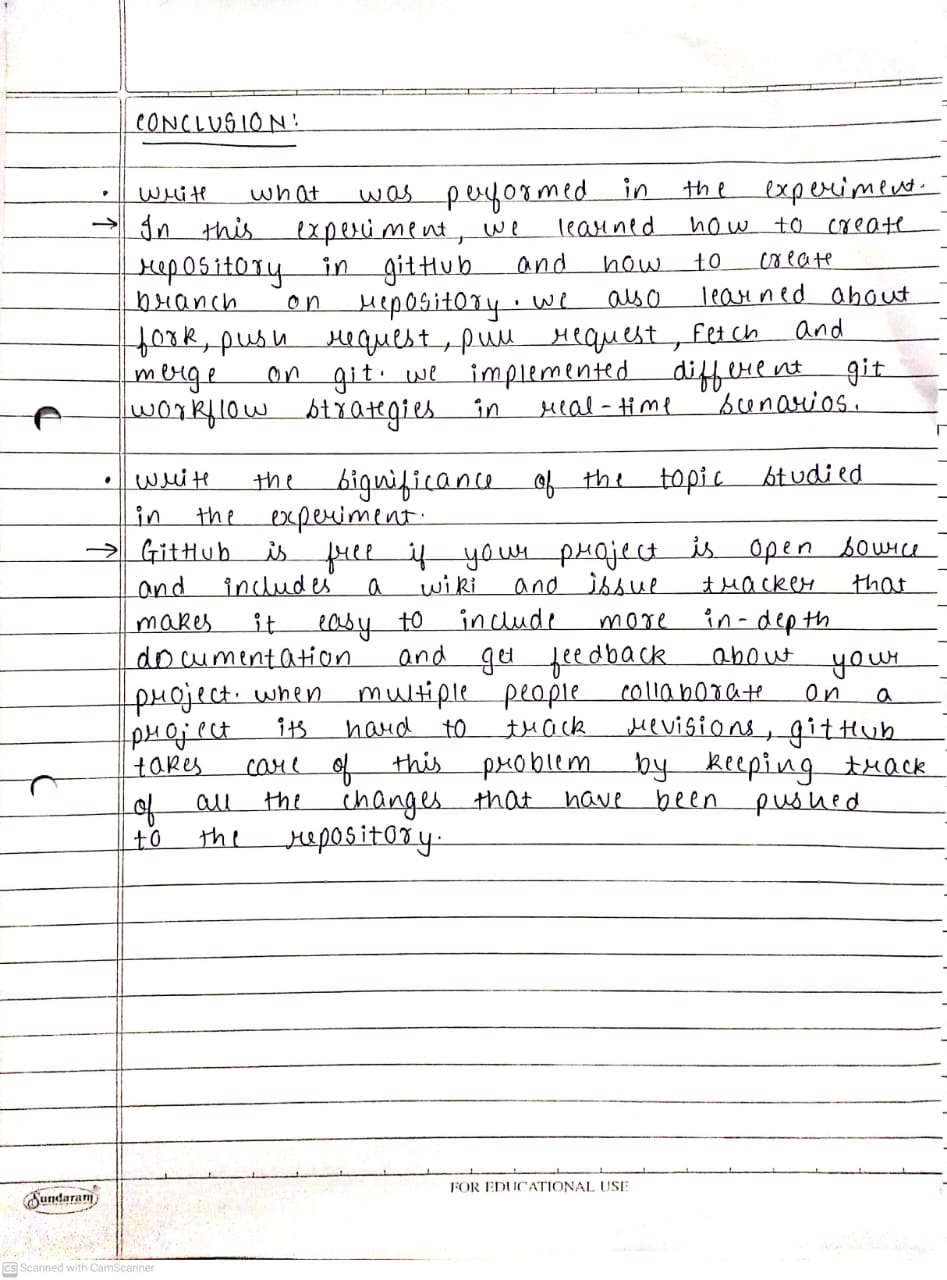 CONCLUSION:
• write what was performed in the experiment.
→ In this experiment, we learned how to create
repository in gitHub and how to create
branch on repository. we also learned about
fork, push request, pull request, Fetch and
merge on git. we implemented different git
workflow strategies in real-time scenarios.
• write the significance of the topic studied
in the experiment.
→ GitHub is free if your project is open source
and includes a wiki and issue tracker that
makes it easy to include more in-depth
documentation and get feedback about your
project. when multiple people collaborate on a
project its hard to track revisions, gitHub
takes care of this problem by keeping track
of all the changes that have been pushed
to the repository.
Sundaram
FOR EDUCATIONAL USE
CS Scanned with CamScanner